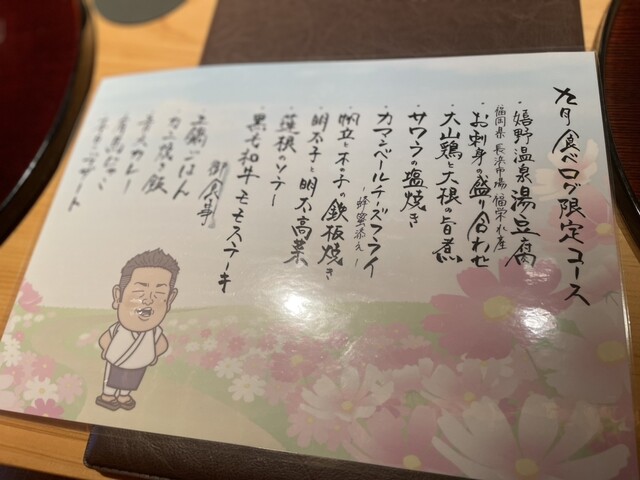 九月 食べログ限定コース
・嬉野温泉湯豆腐
福岡県 長浜市場 福栄水産
・お刺身の盛り合わせ
・大山鶏と大根の旨煮
・サワラの塩焼き
・カマンベールチーズフライ
-蜂蜜添え-
・帆立と木の子の鉄板焼き
・明太子と明太高菜
・蓮根のソテー
・黒毛和牛モモステーキ
御食事
・土鍋ごはん
カレー
デザート